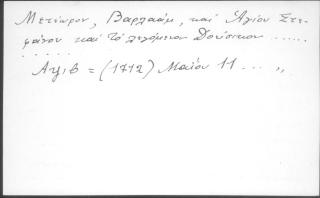 Μετεώρου, Βαρλαάμ, καὶ Ἁγίου Στε-
φάνου καὶ τὸ λεγόμενον Δούσικον ......
......
Αψιβ = (1712) Μαΐου 11 ... „